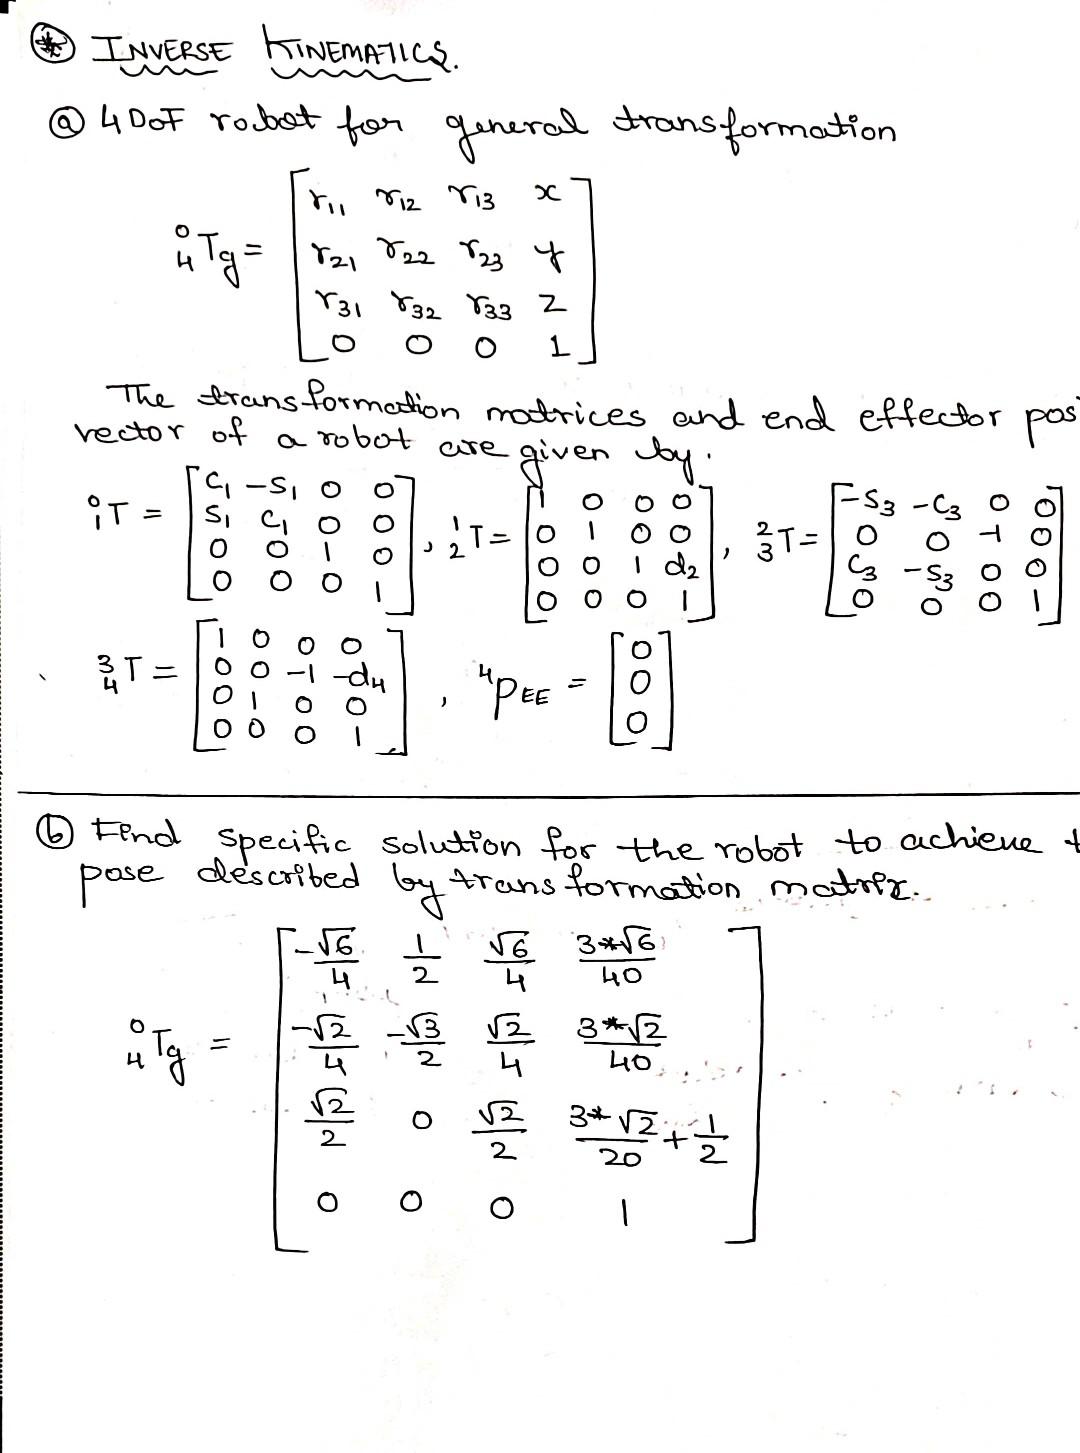 ⊛ INVERSE KINEMATICS.
ⓐ 4 DoF robot for general transformation
⁰₄Tg = [ r11 r12 r13 x
r21 r22 r23 y
r31 r32 r33 z
0 0 0 1 ]
The transformation matrices and end effector pos
vector of a robot are given by.
⁰₁T = [ C1 -S1 0 0 ; S1 C1 0 0 ; 0 0 1 0 ; 0 0 0 1 ], ¹₂T = [ 1 0 0 0 ; 0 1 0 0 ; 0 0 1 d2 ; 0 0 0 1 ], ²₃T = [ -S3 -C3 0 0 ; 0 0 -1 0 ; C3 -S3 0 0 ; 0 0 0 1 ]
³₄T = [ 1 0 0 0 ; 0 0 -1 -d4 ; 0 1 0 0 ; 0 0 0 1 ], ⁴PEE = [ 0 ; 0 ; 0 ]
ⓑ Find specific solution for the robot to achieve t
pose described by transformation matrix.
⁰₄Tg = [ -√6/4 1/2 √6/4 3*√6/40
-√2/4 -√3/2 √2/4 3*√2/40
√2/2 0 √2/2 3*√2/20 + 1/2
0 0 0 1 ]